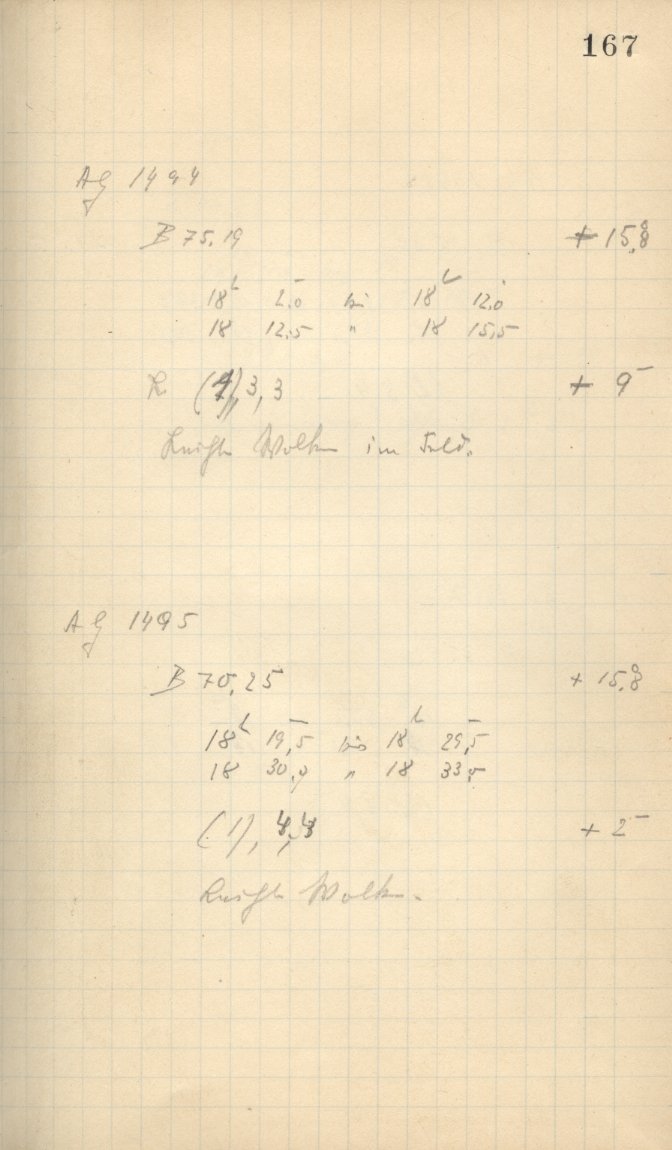 167
AG 1494
B 75.19 + 15,8°
18h 2,0 bis 18h 12,0
18 12,5 " 18 15,5
R (1), 3, 3 + 9
Leichte Wolken im Feld.
AG 1495
B 70,25 + 15,8°
18h 19,5 bis 18h 29,5
18 30,0 " 18 33,5
(1), 4, 4 + 2
Leichte Wolken.